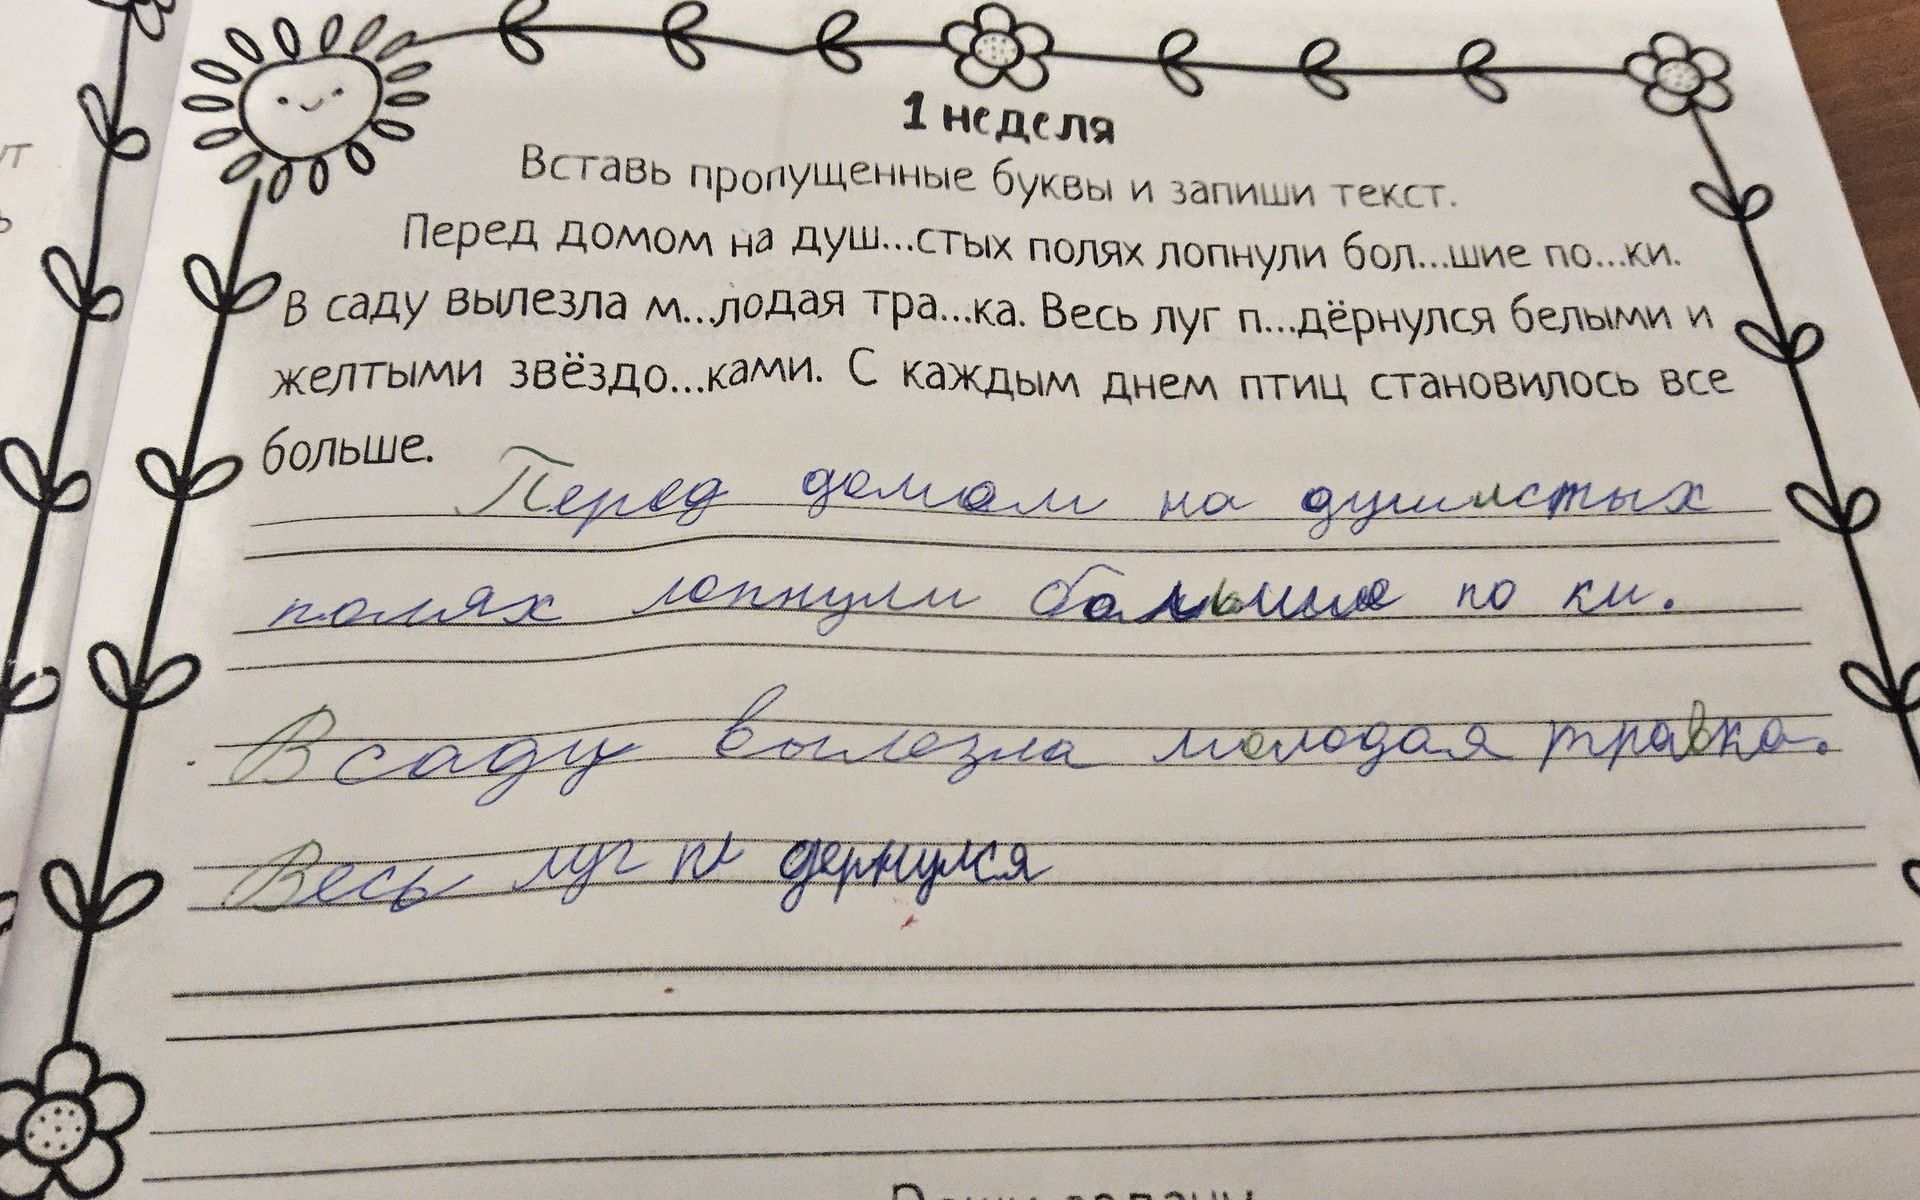 1 неделя
Вставь пропущенные буквы и запиши текст.
Перед домом на душ...стых полях лопнули бол...шие по...ки.
В саду вылезла м...лодая тра...ка. Весь луг п...дёрнулся белыми и
желтыми звёздо...ками. С каждым днем птиц становилось все
больше.
Перед домом на душистых
полях лопнули большие по ки.
В саду вылезла молодая травка.
Весь луг п дернулся